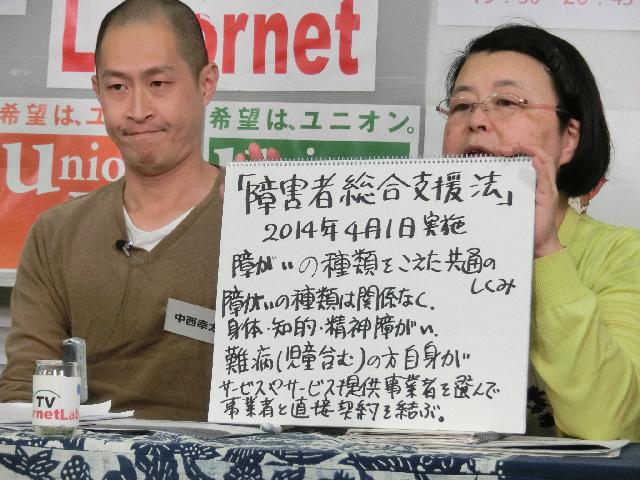 19:30-20:45
L bornet
希望は、ユニ
希望は、ユニオン。
Unio
「障害者総合支援法」
2014年4月1日実施
障がいの種類をこえた共通の
しくみ
障がいの種類は関係なく、
身体・知的・精神障がい、
難病(児童含む)の方自身が
サービスやサービス提供事業者を選んで
事業者と直接契約を結ぶ。
中西幸太
TV
rnetLab